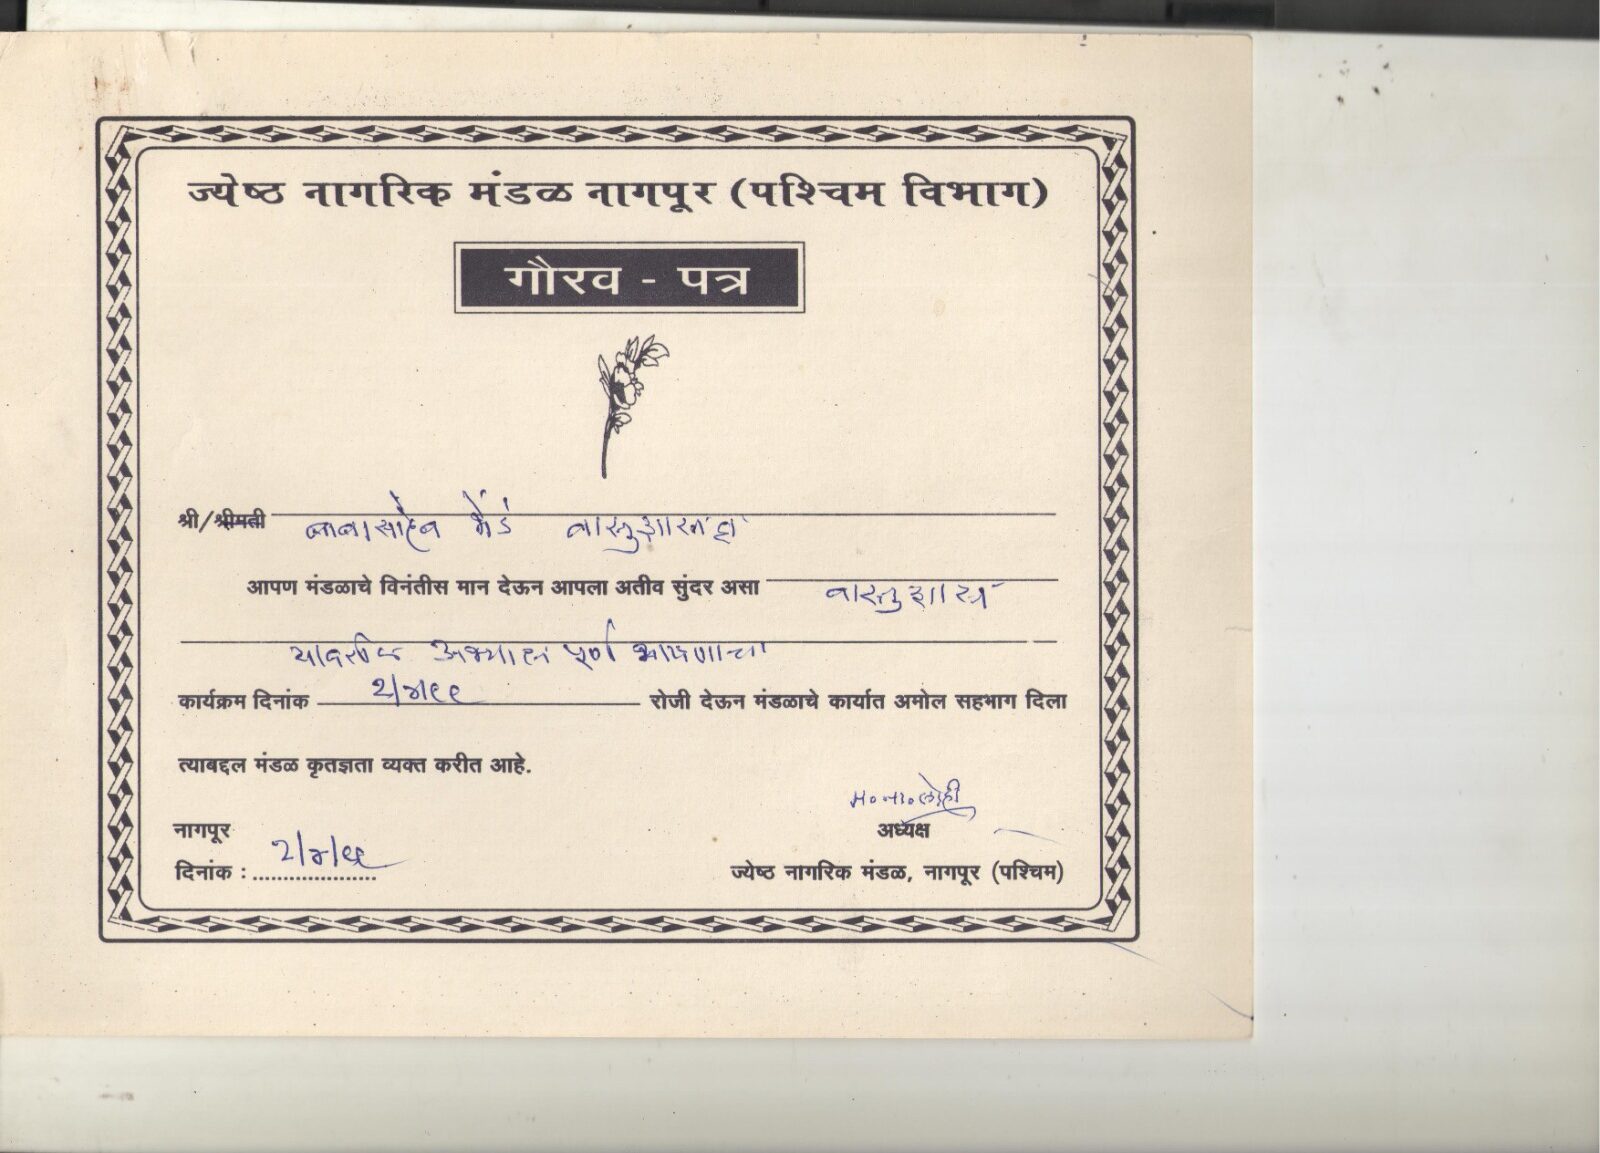 ज्येष्ठ नागरिक मंडळ नागपूर (पश्चिम विभाग)
गौरव - पत्र
श्री/श्रीमती बाबासाहेब वास्तुशास्त्रज्ञ
आपण मंडळाचे विनंतीस मान देऊन आपला अतीव सुंदर असा वास्तुशास्त्र
यावरील अभ्यास पूर्ण भाषणाचा
कार्यक्रम दिनांक २/४/९९ रोजी देऊन मंडळाचे कार्यात अमोल सहभाग दिला
त्याबद्दल मंडळ कृतज्ञता व्यक्त करीत आहे.
म.ना.लोही
नागपूर अध्यक्ष
दिनांक : २/४/९९ ज्येष्ठ नागरिक मंडळ, नागपूर (पश्चिम)